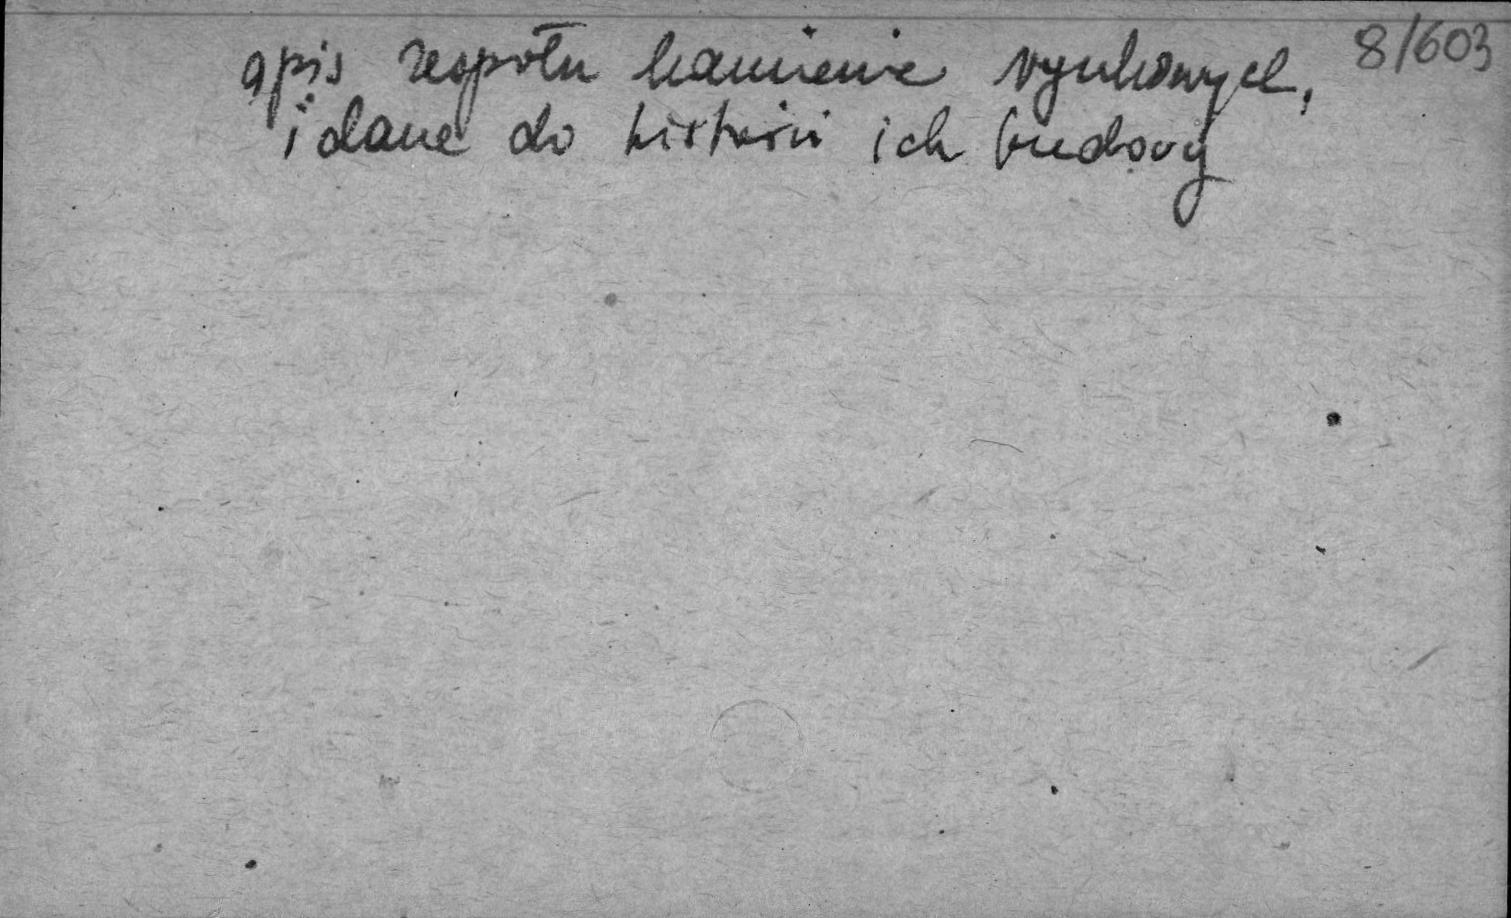 opis zespołu kamienic rynkowych, 8/603
i dane do historii ich budowy